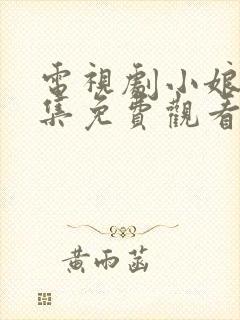 電視劇小娘
集免費觀看
黃雨菡